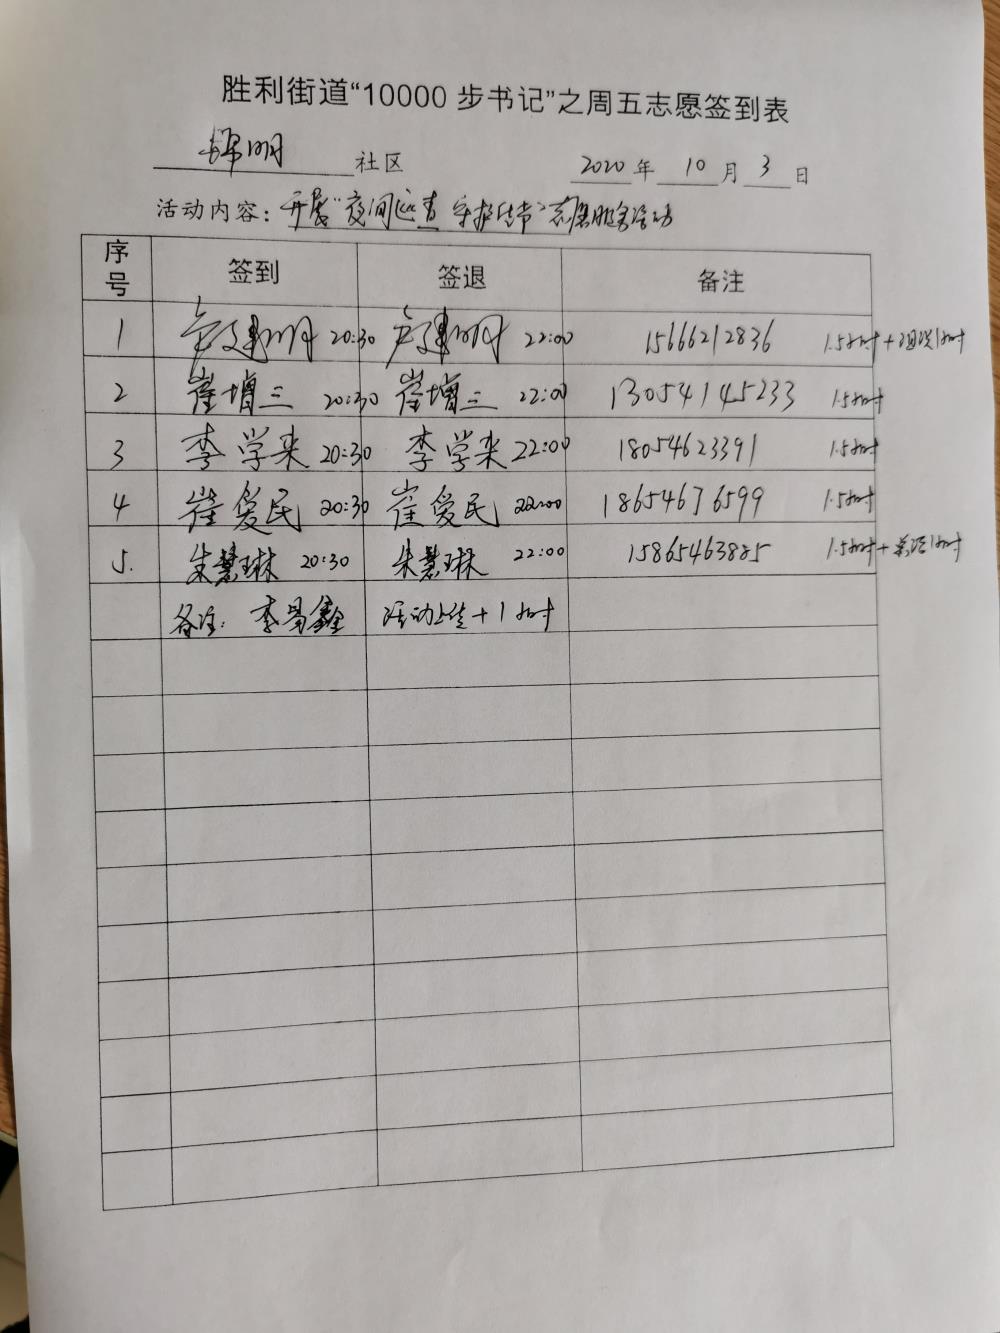 胜利街道“10000 步书记”之周五志愿签到表
锦明 社区 2020 年 10 月 3 日
活动内容: 开展“夜间巡查 守护佳节”志愿服务活动
序号 签到 签退 备注
1 建明 20:30 建明 22:00 15666212836 1.5小时+组织1小时
2 崔增三 20:30 崔增三 22:00 13054145233 1.5小时
3 李学来 20:30 李学来 22:00 18054623391 1.5小时
4 崔爱民 20:30 崔爱民 22:00 18654676599 1.5小时
5. 朱慧琳 20:30 朱慧琳 22:00 15865463885 1.5小时+ 1小时
备注: 李 鑫 活动上传+1小时